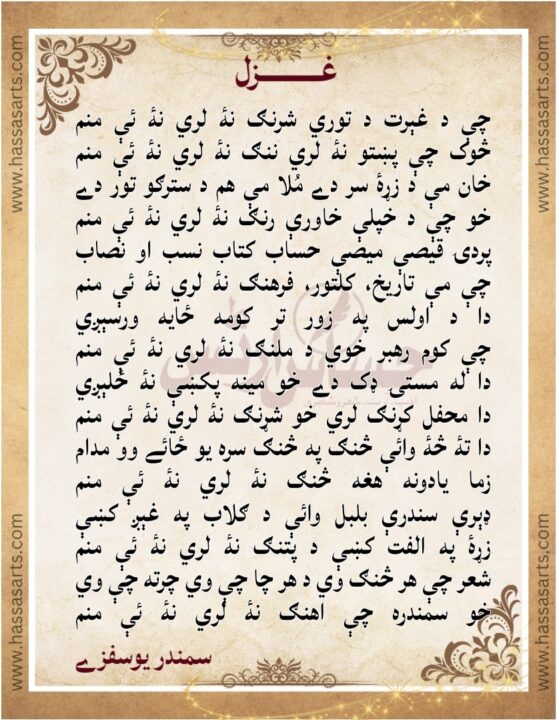 غــــزل
چې د غېرت د تورې شرنګ نۀ لري نۀ ئې منم
څوک چې پښتو نۀ لري ننګ نۀ لري نۀ ئې منم
خان مې د زړۀ سر دے مُلا مې هم د سترګو تور دے
خو چې د خپلې خاورې رنګ نۀ لري نۀ ئې منم
پردۍ قيصې ميصې حساب کتاب نسب او نصاب
چې مې تاريخ، کلتور، فرهنګ نۀ لري نۀ ئې منم
دا د اولس په زور تر کومه ځايه ورسېږي
چې کوم رهبر خوي د ملنګ نۀ لري نۀ ئې منم
دا له مستۍ ډک دے خو مينه پکښې نۀ ځلېږي
دا محفل کړنګ لري خو شړنګ نۀ لري نۀ ئې منم
دا تۀ څۀ وائې څنګ په څنګ سره يو ځائے وو مدام
زما يادونه هغه څنګ نۀ لري نۀ ئې منم
ډېرې سندرې بلبل وائي د ګلاب په غېږ کښې
زړۀ په الفت کښې د پتنګ نۀ لري نۀ ئې منم
شعر چې هر څنګ وي د هر چا چې وي چرته چې وي
خو سمندره چې اهنګ نۀ لري نۀ ئې منم
سمندر يوسفزے
www.hassasarts.com
www.hassasarts.com
www.hassasarts.com
www.hassasarts.com